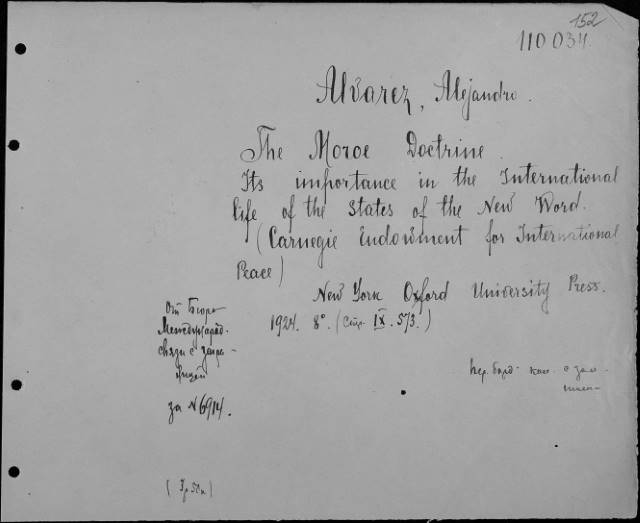 152
110034.
Alvarez, Alejandro.
The Moroe Doctrine
Its importance in the International
life of the States of the New Word.
(Carnegie Endowment for International
Peace)
New York Oxford University Press.
1924. 8°. (Стр. IX. 573.)
От Бюро
Международ.
связи с загра-
ницей
за №6914.
Пер. с